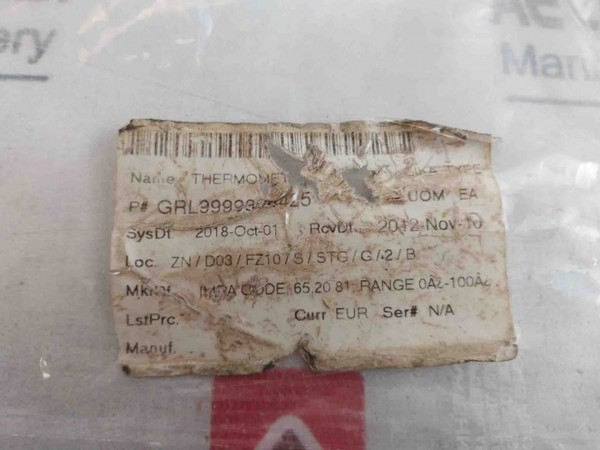 ery
Man
Name THERMOMET TYPE
P# GRL99993 425 UOM EA
SysDt 2018-Oct-01 RcvDt. 2012-Nov-10
Loc. ZN / D03 / FZ10 / S / STG / G / 2 / B
IMPA CODE: 65.20.81, RANGE 0Âz-100Âz
LstPrc. Curr EUR Ser# N/A
Manuf.